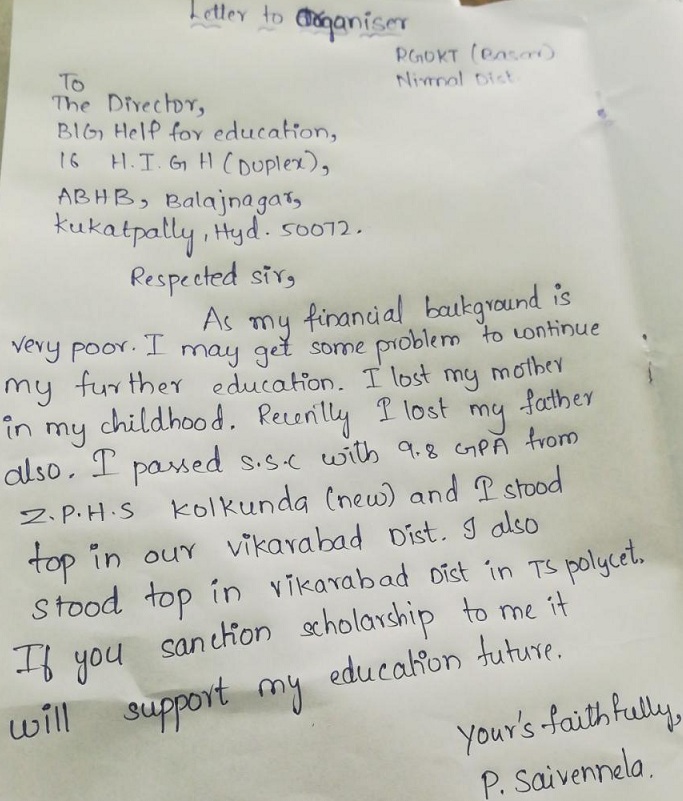 Letter to Organiser
RGUKT (Basar)
Nirmal Dist
To
The Director,
BIG Help for education,
16 H.I.G H (Duplex),
ABHB, Balajnagar,
Kukatpally, Hyd. 50072.
Respected sir,
As my financial background is
very poor. I may get some problem to continue
my further education. I lost my mother
in my childhood. Recenilly I lost my father
also. I passed s.s.c with 9.8 GPA from
Z.P.H.S Kolkunda (new) and I stood
top in our vikarabad Dist. I also
stood top in vikarabad Dist in TS polycet.
If you sanction scholarship to me it
will support my education future.
Your's faithfully,
P. Saivennela.